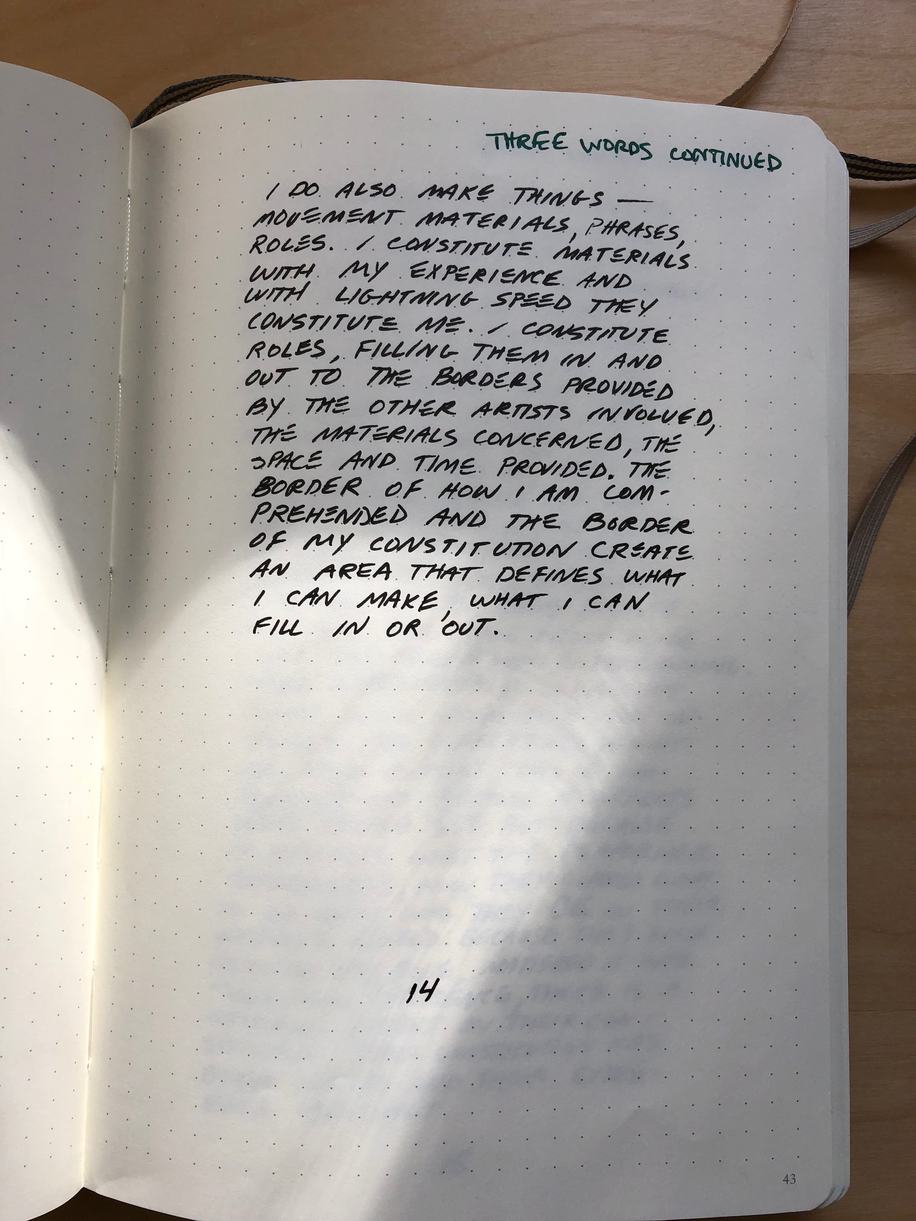 THREE WORDS CONTINUED
I DO ALSO MAKE THINGS —
MOVEMENT MATERIALS, PHRASES,
ROLES. I CONSTITUTE MATERIALS
WITH MY EXPERIENCE AND
WITH LIGHTNING SPEED THEY
CONSTITUTE ME. I CONSTITUTE
ROLES, FILLING THEM IN AND
OUT TO THE BORDERS PROVIDED
BY THE OTHER ARTISTS INVOLVED,
THE MATERIALS CONCERNED, THE
SPACE AND TIME PROVIDED. THE
BORDER OF HOW I AM COM-
PREHENDED AND THE BORDER
OF MY CONSTITUTION CREATE
AN AREA THAT DEFINES WHAT
I CAN MAKE, WHAT I CAN
FILL IN OR OUT.
14
43